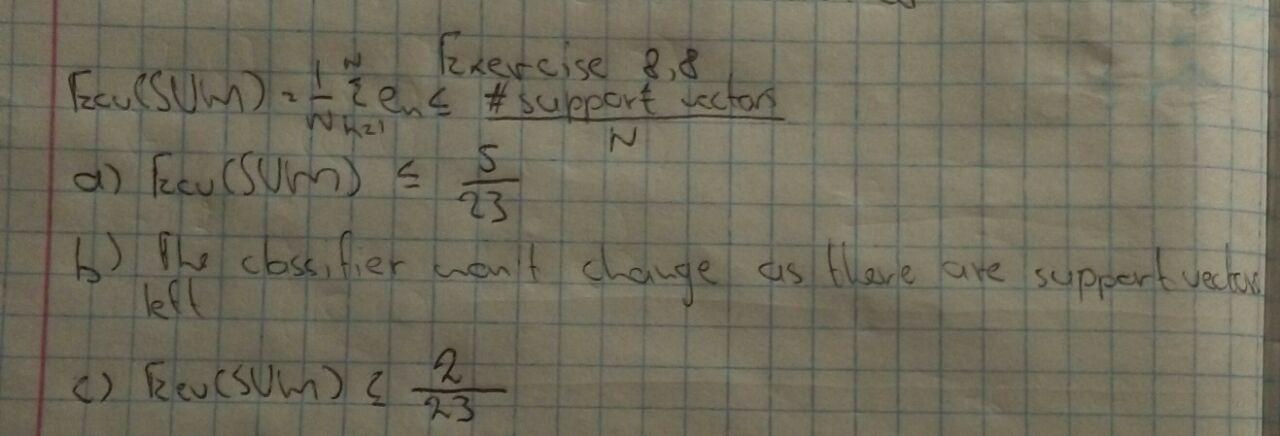 Exercise 8.8
Ecv(SVM) = 1/N N Σ n=1 en ≤ # support vectors / N
a) Ecv(SVM) ≤ 5/23
b) The classifier won't change as there are support vectors
left
c) Ecv(SVM) ≤ 2/23